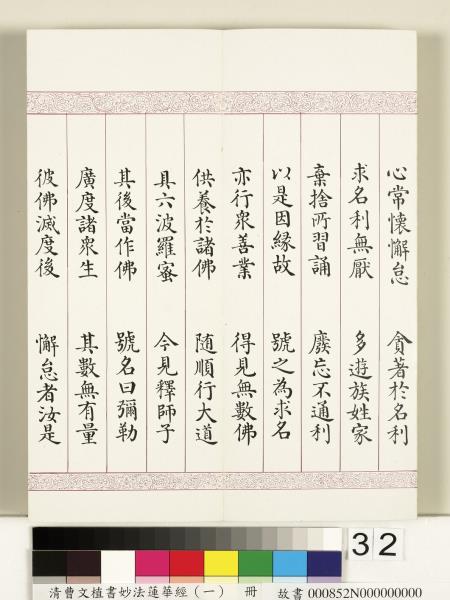 心常懷懈怠　貪著於名利
求名利無厭　多遊族姓家
棄捨所習誦　廢忘不通利
以是因緣故　號之為求名
亦行眾善業　得見無數佛
供養於諸佛　隨順行大道
具六波羅蜜　今見釋師子
其後當作佛　號名曰彌勒
廣度諸眾生　其數無有量
彼佛滅度後　懈怠者汝是
32
清曹文植書妙法蓮華經(一)　冊　故書 000852N000000000